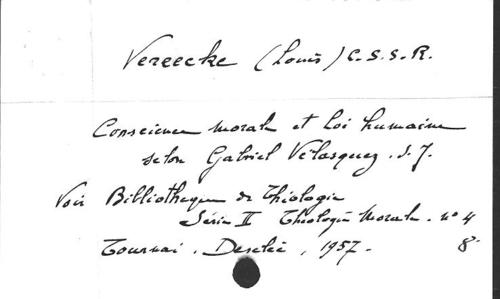 Vereecke (Louis) C.S.S.R.
Conscience morale et loi humaine
selon Gabriel Vélasquez. S.J.
Voir Bibliothèque de Théologie
Série II Théologie Morale. no 4
Tournai. Desclée, 1957.- 8°